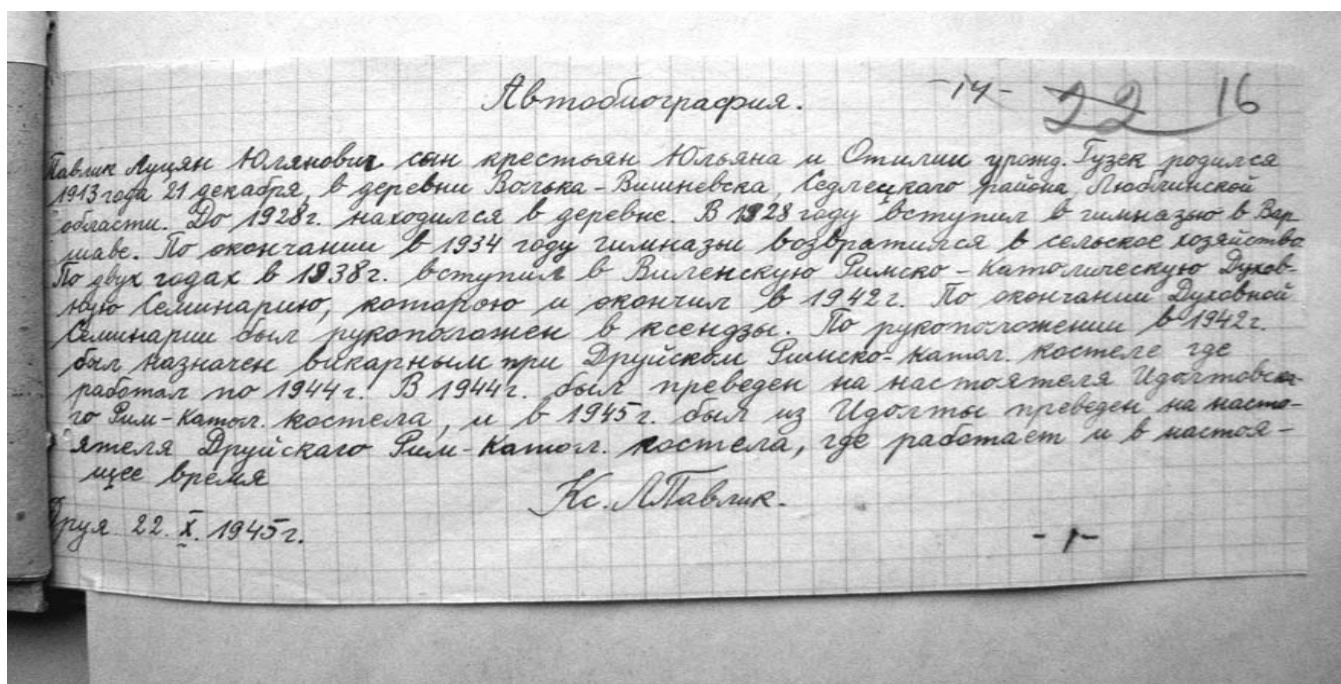 Автобиография.
-14- 22 16
Павлик Луцян Юлянович сын крестьян Юльяна и Отилии урожд. Гузек родился
1913 года 21 декабря, в деревни Волька-Вишневска, Седлецкаго района, Люблинской
области. До 1928г. находился в деревне. В 1928 году вступил в гимназью в Вар
шаве. По окончании в 1934 году гимназьи возвратился в сельское хозяйство
По двух годах в 1938г. вступил в Виленскую Римско-Католическую Духов-
ную Семинарию, которою и окончил в 1942г. По окончании Духовной
Семинарии был рукоположен в ксендзы. По рукоположении в 1942г.
был назначен викарным при Друйском Римско-катол. костеле где
работал по 1944г. В 1944г. был преведен на настоятеля Идолтовска-
го Рим-катол. костела, и в 1945г. был из Идолты преведен на насто-
ятеля Друйскаго Рим-Катол. костела, где работает и в настоя-
щее время
Кс. ЛПавлик.
Друя 22. X. 1945г.
-1-